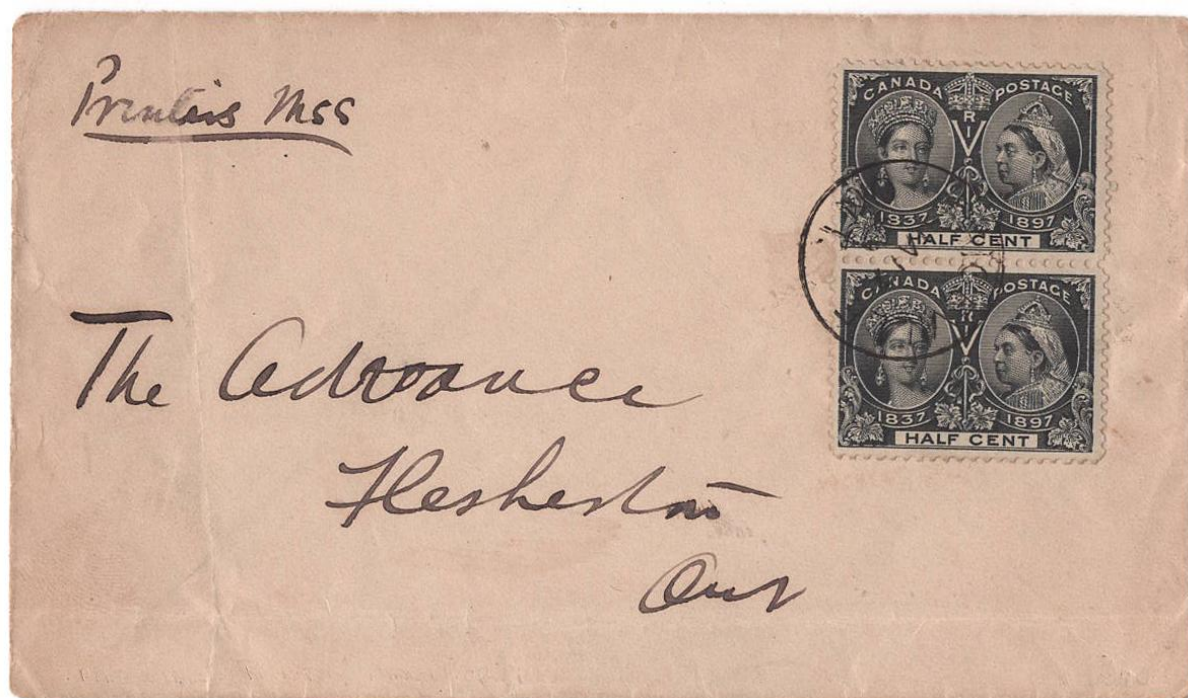 Printers Mss
CANADA POSTAGE
V R I
1837 1897
HALF CENT
CANADA POSTAGE
V R I
1837 1897
HALF CENT
The Advance
Flesherton
Ont